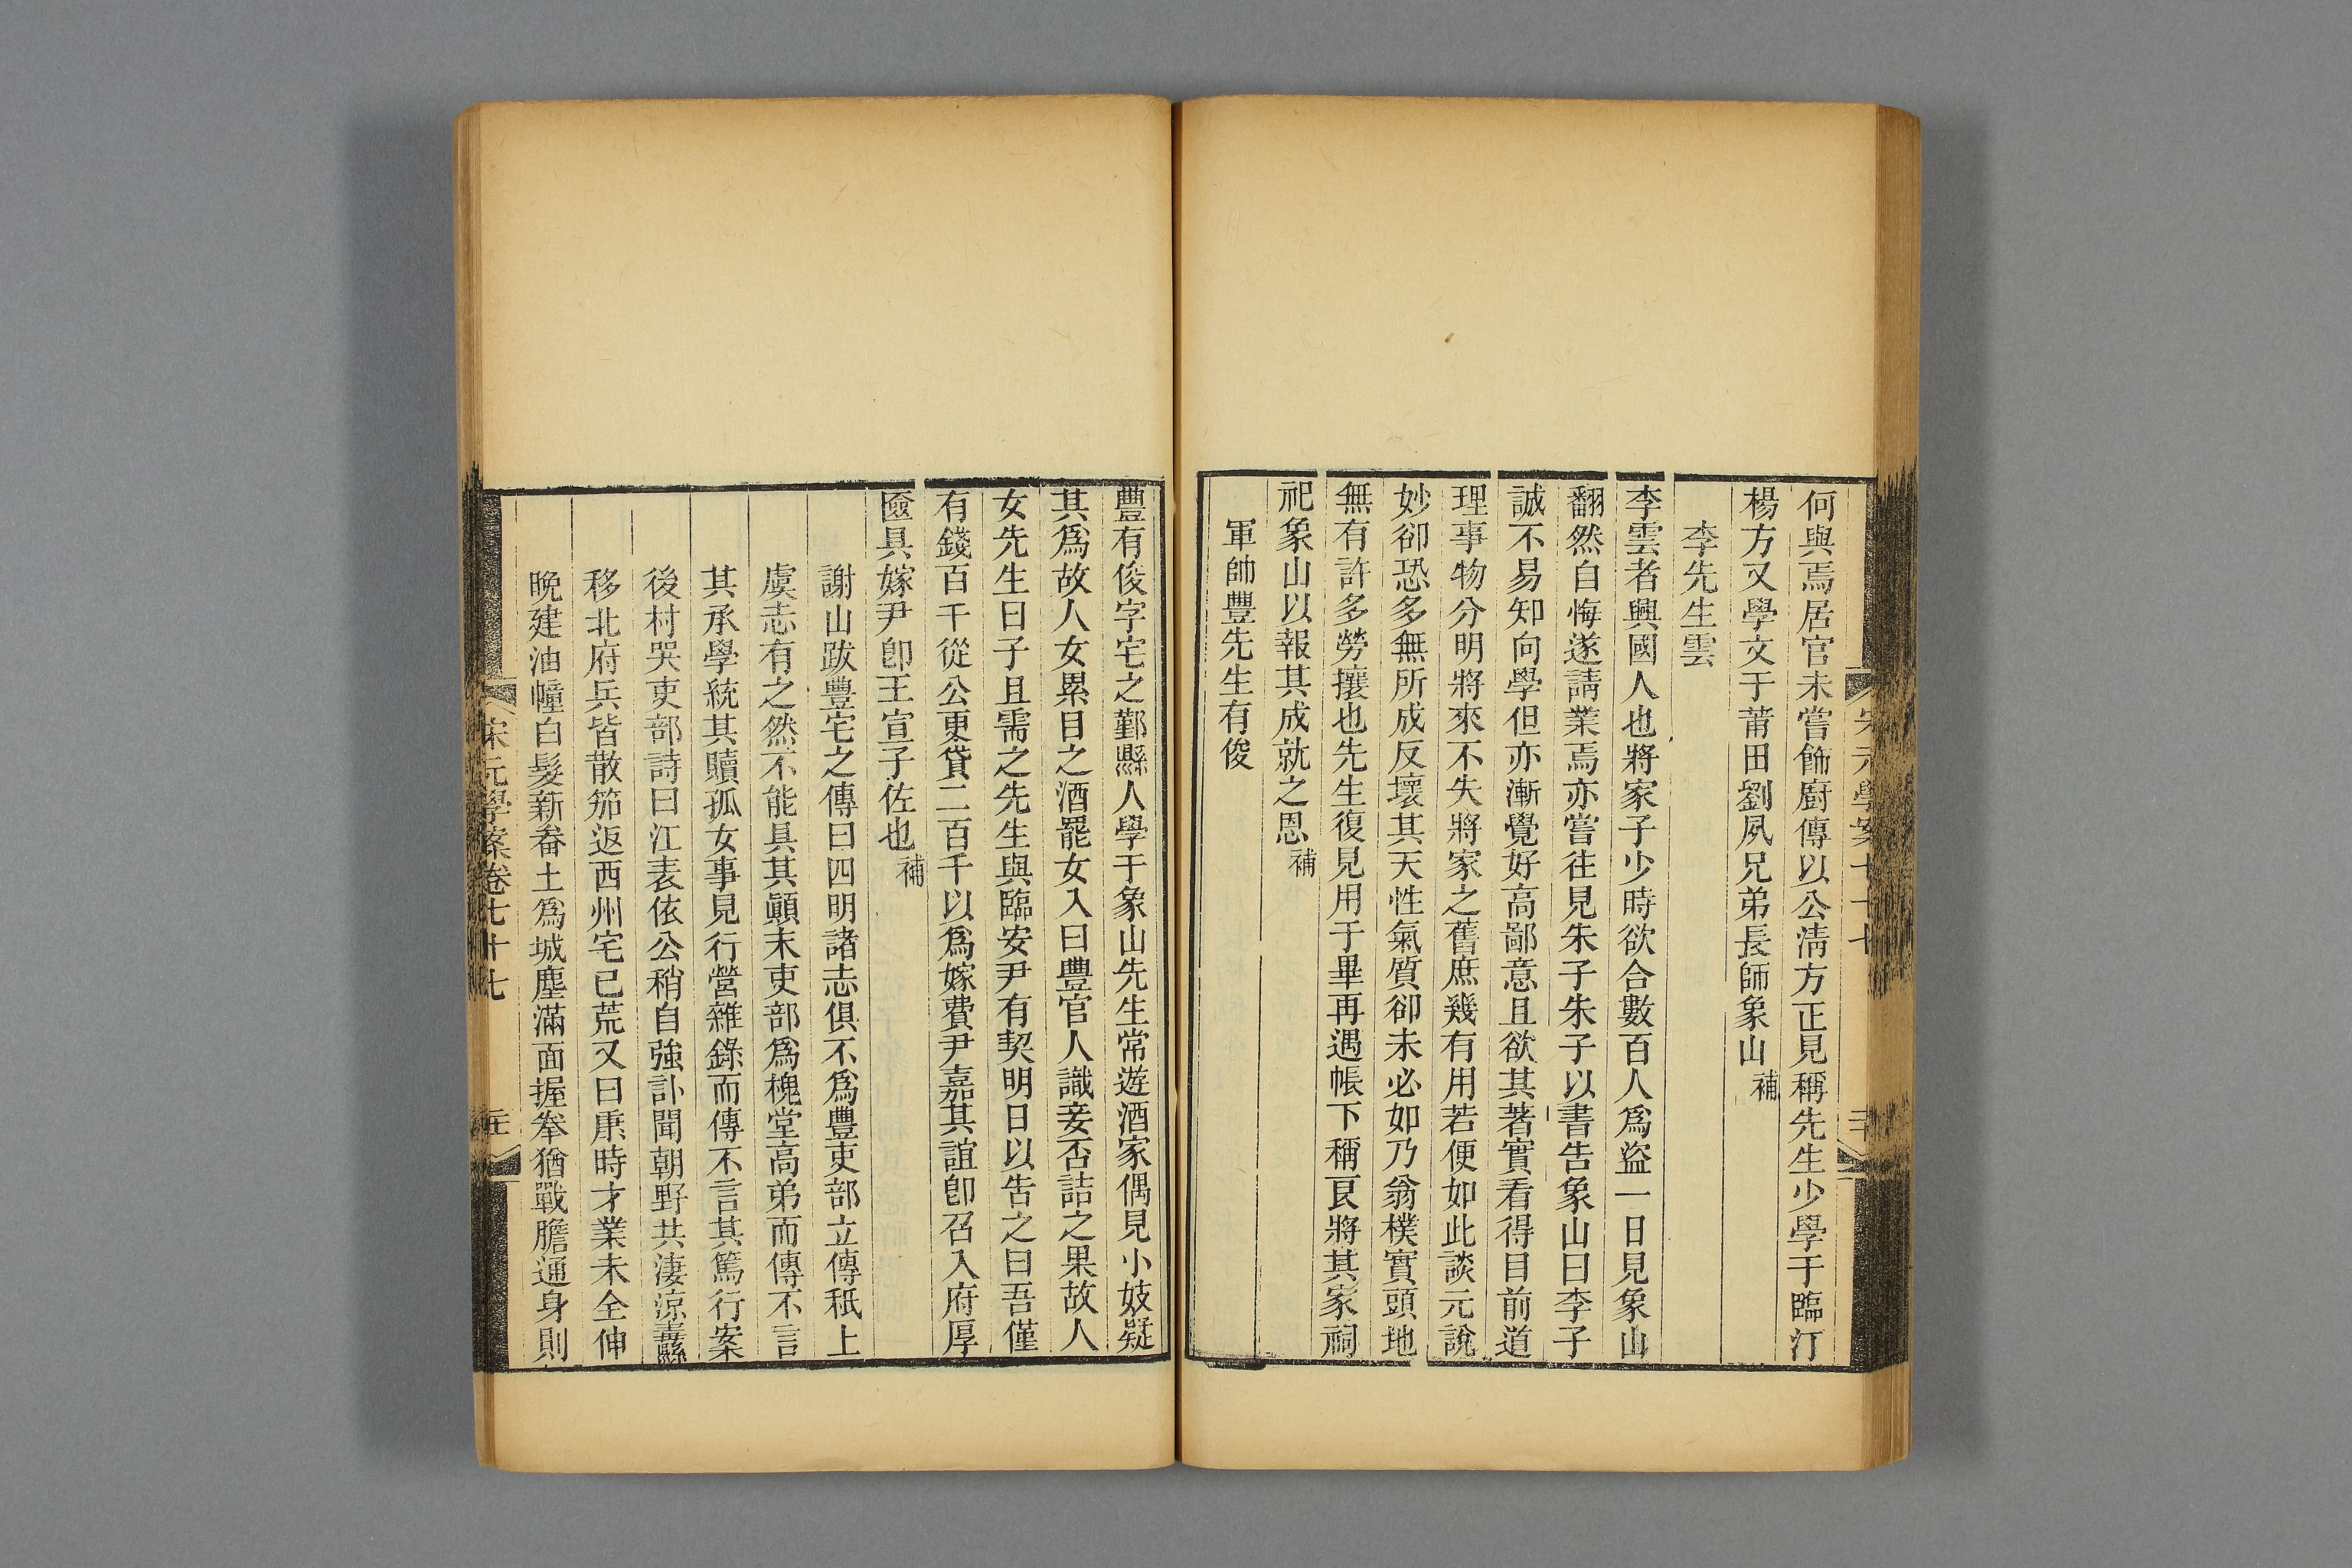 何與焉居官未嘗飾廚傳以公淸方正見稱先生少學于臨汀
楊方又學文于莆田劉夙兄弟長師象山補
李先生雲
李雲者興國人也將家子少時欲合數百人爲盜一日見象山
翻然自悔遂請業焉亦嘗往見朱子朱子以書告象山曰李子
誠不易知向學但亦漸覺好高鄙意且欲其著實看得目前道
理事物分明將來不失將家之舊庶幾有用若便如此談元說
妙卻恐多無所成反壞其天性氣質卻未必如乃翁樸實頭地
無有許多勞攘也先生復見用于畢再遇帳下稱良將其家祠
祀象山以報其成就之恩補
軍帥豐先生有俊
豐有俊字宅之鄞縣人學于象山先生常遊酒家偶見小妓疑
其爲故人女累目之酒罷女入曰豐官人識妾否詰之果故人
女先生曰子且需之先生與臨安尹有契明日以告之曰吾僅
有錢百千從公更貸二百千以爲嫁費尹嘉其誼卽召入府厚
匳具嫁尹卽王宣子佐也補
謝山跋豐宅之傳曰四明諸志俱不爲豐吏部立傳秖上
虞志有之然不能具其顚末吏部爲槐堂高弟而傳不言
其承學統其贖孤女事見行營雜錄而傳不言其篤行案
後村哭吏部詩曰江表依公稍自強訃聞朝野共淒涼
移北府兵皆散笳返西州宅已荒又曰秉時才業未全伸
晩建油幢白髮新畚土爲城塵滿面握拳猶戰膽通身則
宋元學案卷七十七